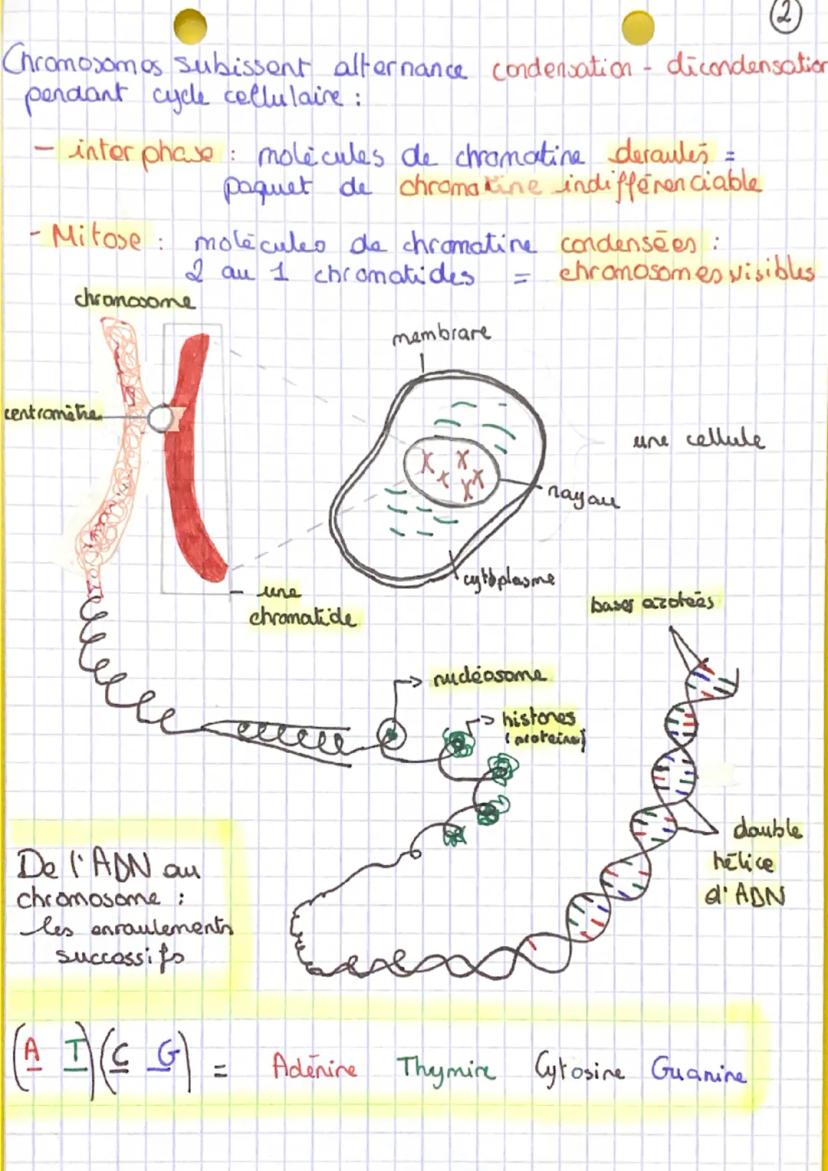 2
Chromosomes subissent alternance condensation - décondensation
pendant cycle cellulaire :
- interphase : molécules de chromatine déroulés =
paquet de chromatine indifférenciable
- Mitose : molécules de chromatine condensées :
2 ou 1 chromatides = chromosomes visibles
chromosome
membrane
centromètre
une cellule
noyau
cytoplasme
une
chromatide
bases azotées
nucléosome
histones
(protéines)
double
hélice
d'ADN
De l'ADN au
chromosome :
les enroulements
successifs
(A T)(C G) = Adénine Thymine Cytosine Guanine